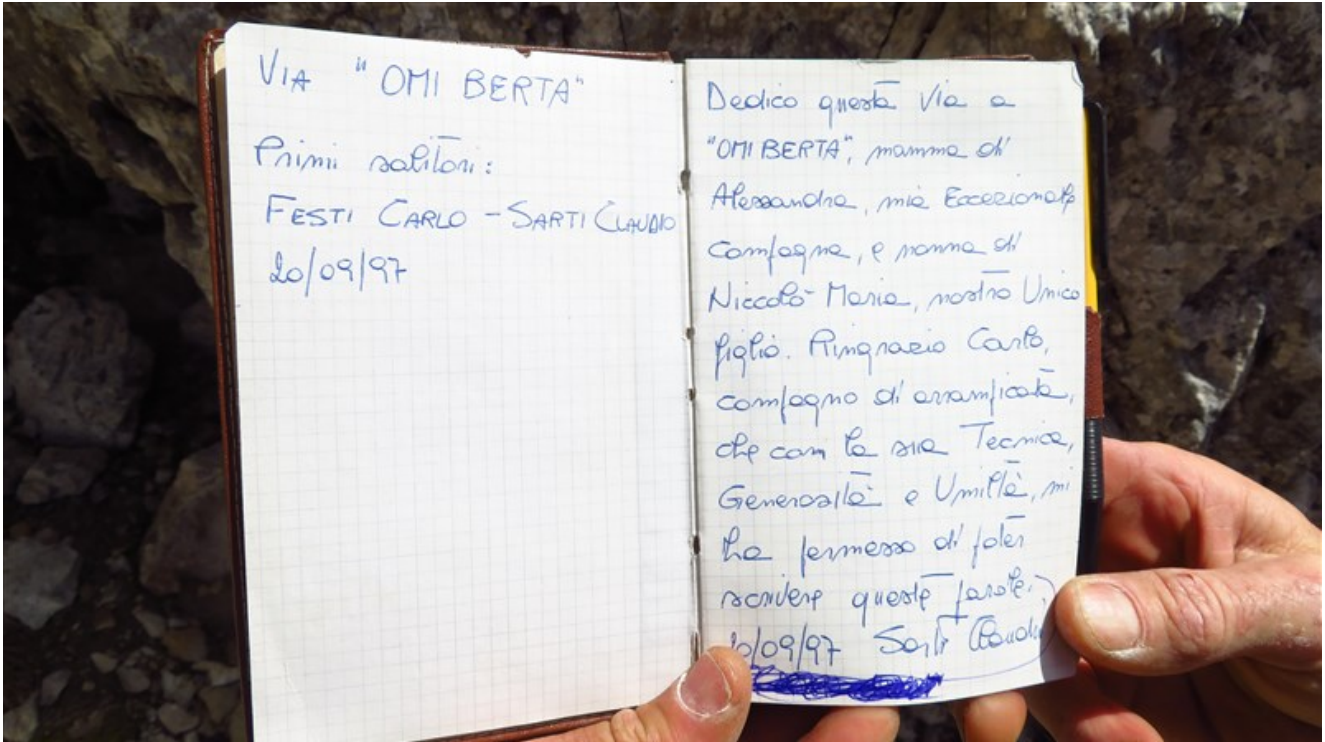 VIA "OMI BERTA"
Primi salitori:
FESTI CARLO - SARTI CLAUDIO
20/09/97
Dedico questa Via a
"OMI BERTA", mamma di
Alessandra, mia Eccezionale
compagna, e nonna di
Niccolò Maria, nostro Unico
figlio. Ringrazio Carlo,
compagno di arrampicata,
che con la sua Tecnica,
Generosità e Umiltà, mi
ha permesso di poter
scrivere queste parole.
20/09/97 Sarti Claudio